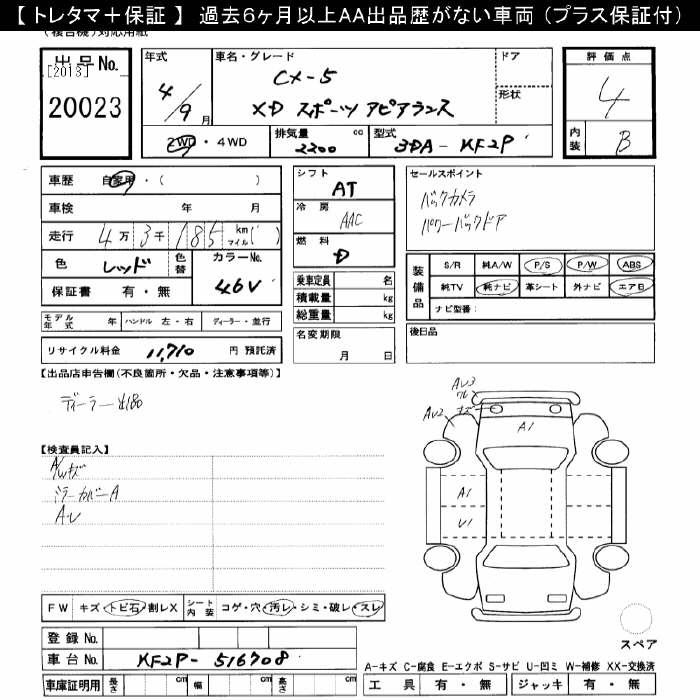 【 トレタマ＋保証 】 過去6ヶ月以上AA出品歴がない車両 (プラス保証付)
(複合機)対応用紙
出品No.
[2013]
20023
年式
4/9月
車名・グレード
CX-5
XD スポーツ アピアランス
ドア
形状
評価点
4
内装 B
2WD・4WD
排気量 2200 cc
型式 3DA-KF2P
車歴 自家用・( )
車検 年 月
走行 4万3千185 km マイル( )
色 レッド 色替
カラーNo. 46V
保証書 有・無
モデル年式 年 ハンドル 左・右 ディーラー・並行
リサイクル料金 11,710 円 預託済
シフト
AT
冷房
AAC
燃料
D
乗車定員 名
積載量 kg
総重量 kg
名変期限
月 日
セールスポイント
バックカメラ
パワーバックドア
装備品
S/R 純A/W P/S P/W ABS
純TV 純ナビ 革シート 外ナビ エアB
ナビ型番:
後日品
【出品店申告欄(不良箇所・欠品・注意事項等)】
【検査員記入】
A/Wキズ
ミラーカバーA
AU
AU3
AU2
A1
A1
U1
FW キズ・トビ石・割レX シート内装 コゲ・穴・汚レ・シミ・破レ・スレ
登録 No.
車台 No. KF2P-516708
車庫証明用 長さ cm 幅 cm 高さ cm
スペア
A-キズ C-腐食 E-エクボ S-サビ U-凹ミ W-補修 XX-交換済
工具 有・無 ジャッキ 有・無